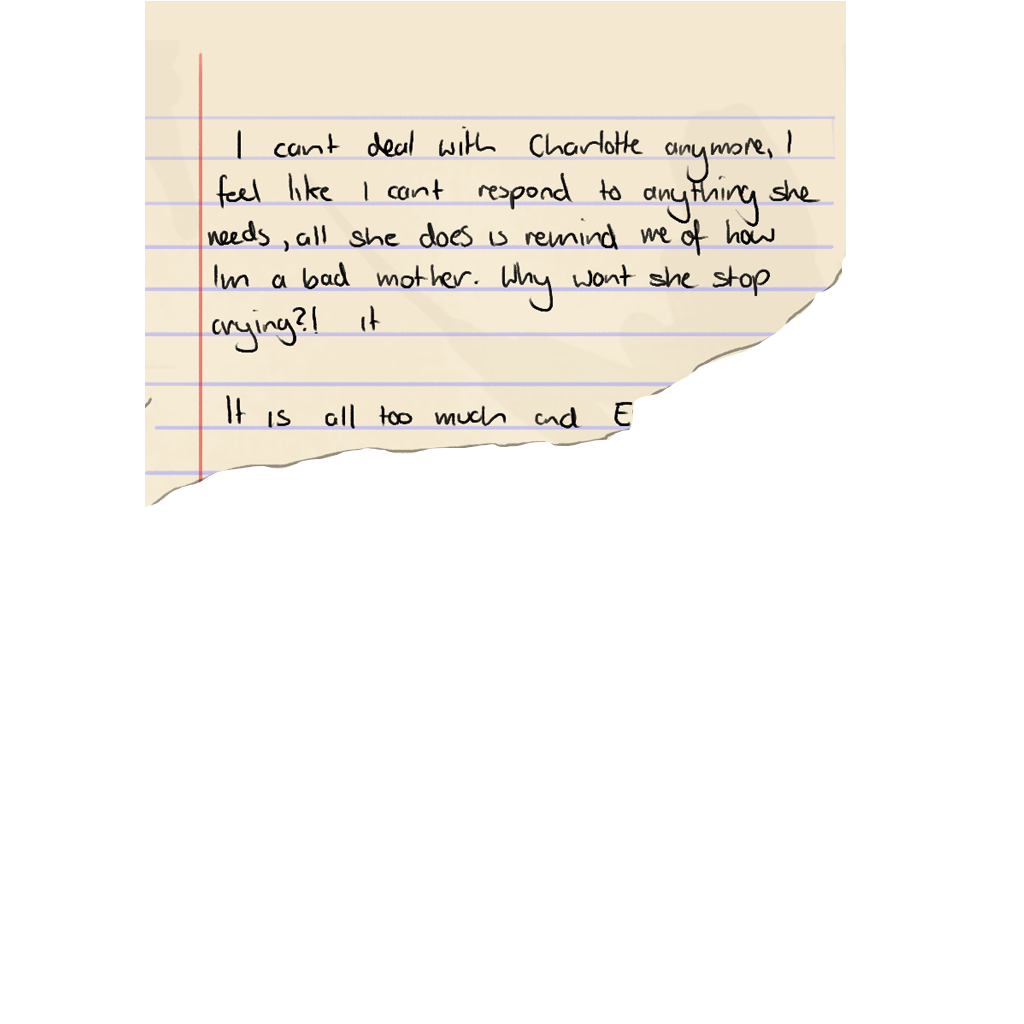 I cant deal with Charlotte anymore, I
feel like I cant respond to anything she
needs, all she does is remind me of how
Im a bad mother. Why wont she stop
crying?! it
It is all too much and E